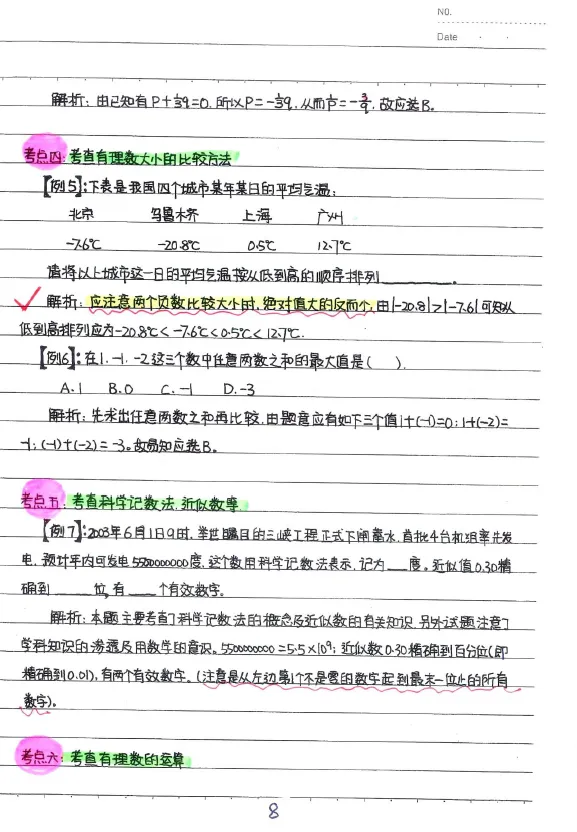 NO.
Date
解析：由已知有P+⅓q=0，所以P=-⅓q，从而
故应选B。
考点四：考查有理数大小的比较方法
【例5】：下表是我国四个城市某年某日的平均气温：
北京 乌鲁木齐 上海 广州
-7.6℃ -20.8℃ 0.5℃ 12.7℃
请将以上城市这一日的平均气温按从低到高的顺序排列________。
解析：应注意两个负数比较大小时，绝对值大的反而小，由|-20.8|>|-7.6|可知从
低到高排列应为-20.8℃<-7.6℃<0.5℃<12.7℃.
【例6】：在1，-1，-2这三个数中任意两数之和的最大值是（ ）.
A.1 B.0 C.-1 D.-3
解析：先求出任意两数之和再比较，由题意应有如下三个值1+(-1)=0；1+(-2)=
-1；(-1)+(-2)=-3。故易知应选B。
考点五：考查科学记数法，近似数等
【例7】：2003年6月1日9时，举世瞩目的三峡工程正式下闸蓄水，首批4台机组率先发
电，预计年内可发电5500000000度，这个数用科学记数法表示，记为___度。近似值0.30精
确到____位，有___个有效数字。
解析：本题主要考查了科学记数法的概念及近似数的有关知识，另外试题注意了
学科知识的渗透及用数学的意识。5500000000=5.5×10⁹；近似数0.30精确到百分位(即
精确到0.01)，有两个有效数字。(注意是从左边第1个不是零的数字起到最末一位止的所有
数字)。
考点六：考查有理数的运算
8